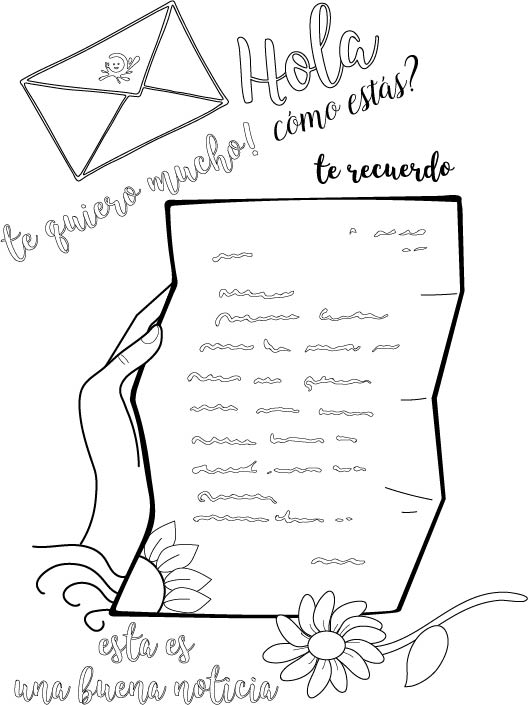 Hola
cómo estás?
te quiero mucho!
te recuerdo
esta es
una buena noticia